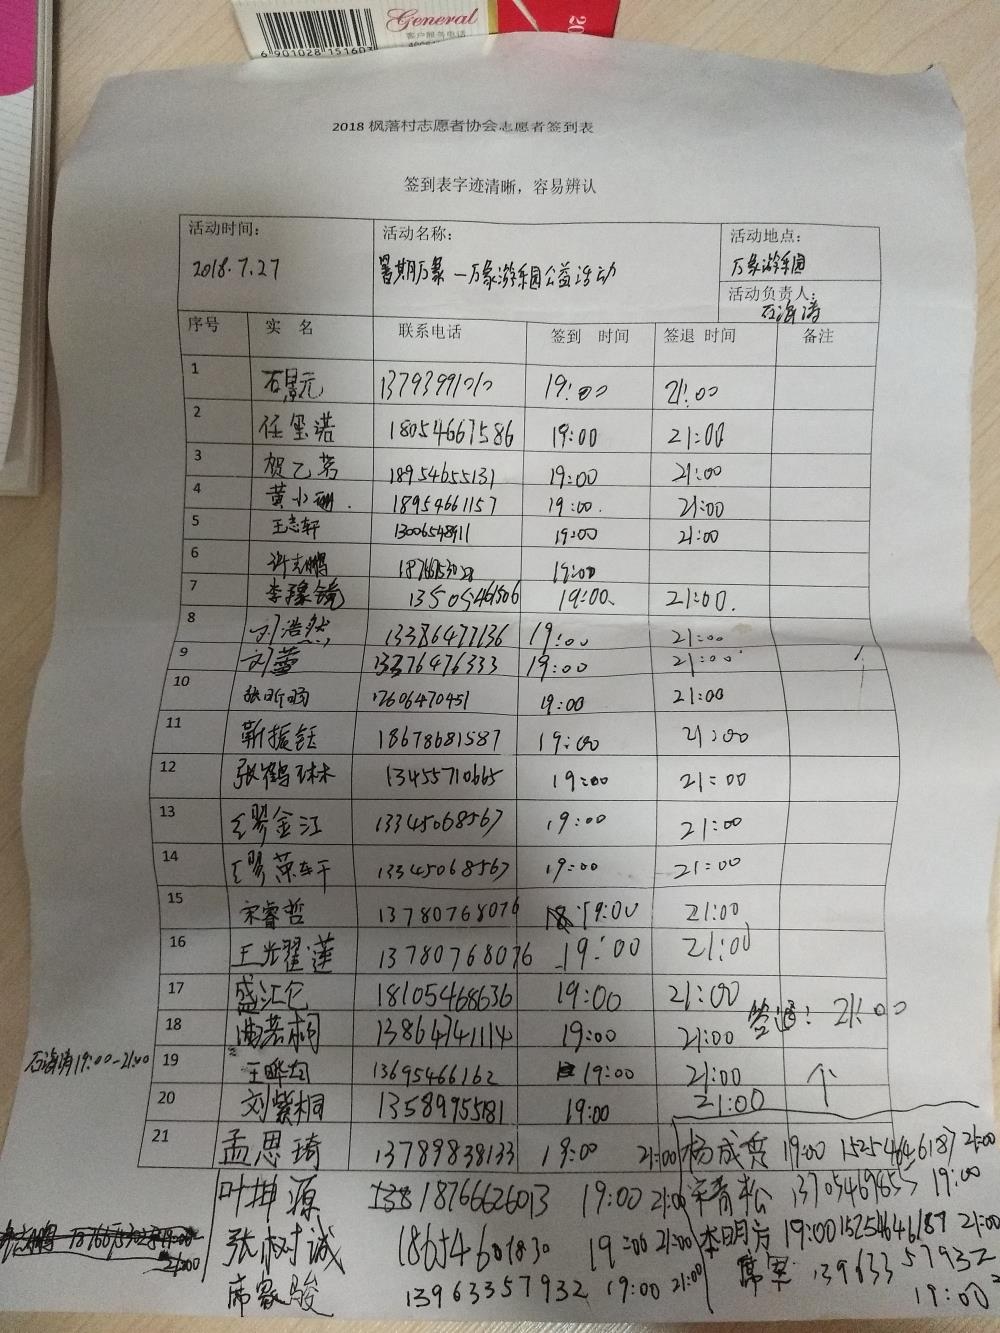 General
客户服务电话
6 901028 151603
20
2018 枫落村志愿者协会志愿者签到表
签到表字迹清晰，容易辨认
活动时间： 活动名称： 活动地点：
2018.7.27 暑期万象一万象游乐园公益活动 万象游乐园
活动负责人：
石海涛
序号 实 名 联系电话 签到 时间 签退 时间 备注
1 石景元 13793991010 19:00 21:00
2 任玺诺 18054667586 19:00 21:00
3 贺乙芮 18954655131 19:00 21:00
4 黄小珊 18954661157 19:00 21:00
5 王志轩 19:00 21:00
6 许志鹏 19:00
7 李豫镜 13505461506 19:00 21:00
8 刘浩然 13386477136 19:00 21:00
9 刘萱 13376476333 19:00 21:00
10 张昕雨 17606470451 19:00 21:00
11 靳振钰 18678681587 19:00 21:00
12 张鹤琳 13455710665 19:00 21:00
13 缪金江 13345068567 19:00 21:00
14 缪荣轩 13345068567 19:00 21:00
15 宋睿哲 13780768076 19:00 21:00
16 王光翟莲 13780768076 19:00 21:00
17 盛江亿 18105468636 19:00 21:00
签退：21:00
18 曲若桐 13864741114 19:00 21:00
石海涛19:00-21:00
19 王晔 13695466162 19:00 21:00 个
20 刘紫桐 13589955181 19:00 21:00
21 孟思琦 13789838133 19:00 21:00 杨成贵 19:00 15254646187 21:00
叶坤源 18766626013 19:00 21:00 宋青松 13705469655 19:00
张树诚 18654601830 19:00 21:00 李明方 19:00 15254646187 21:00
21:00
席家骏 13963357932 19:00 21:00 席军 13963357932
19:00